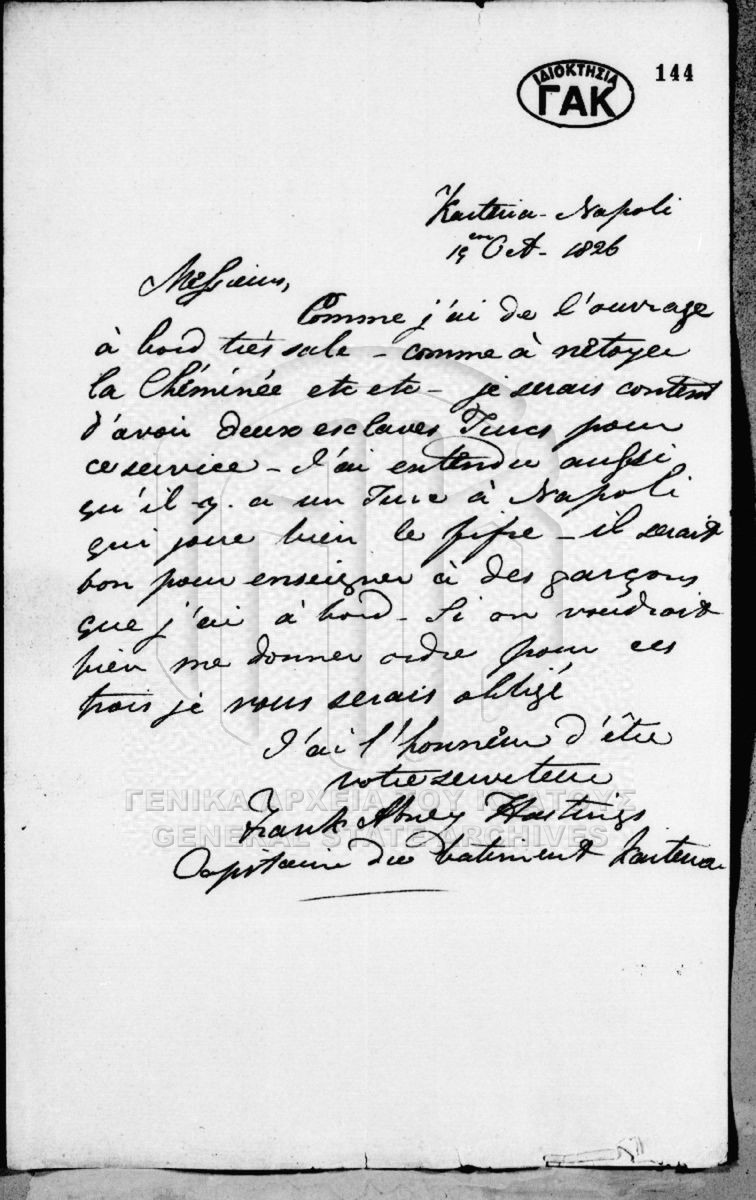 ΙΔΙΟΚΤΗΣΙΑ
ΓΑΚ
144
Karteria - Napoli
15 em Oct - 1826
Messieurs,
Comme j'ai de l'ouvrage
à bord très sale - comme à nètoyer
la Chéminée etc etc - je serais content
d'avoir deux esclaves Turcs pour
ce service - J'ai entendu aussi
qu'il y. a un Turc à Napoli
qui joue bien le fifre - il serait
bon pour enseigner à des garçons
que j'ai à bord - Si on voudrait
bien me donner ordre pour ces
trois je vous serais obligé
J'ai l'honneur d'être
votre serviteur
ΓΕΝΙΚΑ ΑΡΧΕΙΑ ΤΟΥ ΚΡΑΤΟΥΣ
Frank Abney Hastings
GENERAL STATE ARCHIVES
Capitaine du batiment Karteria